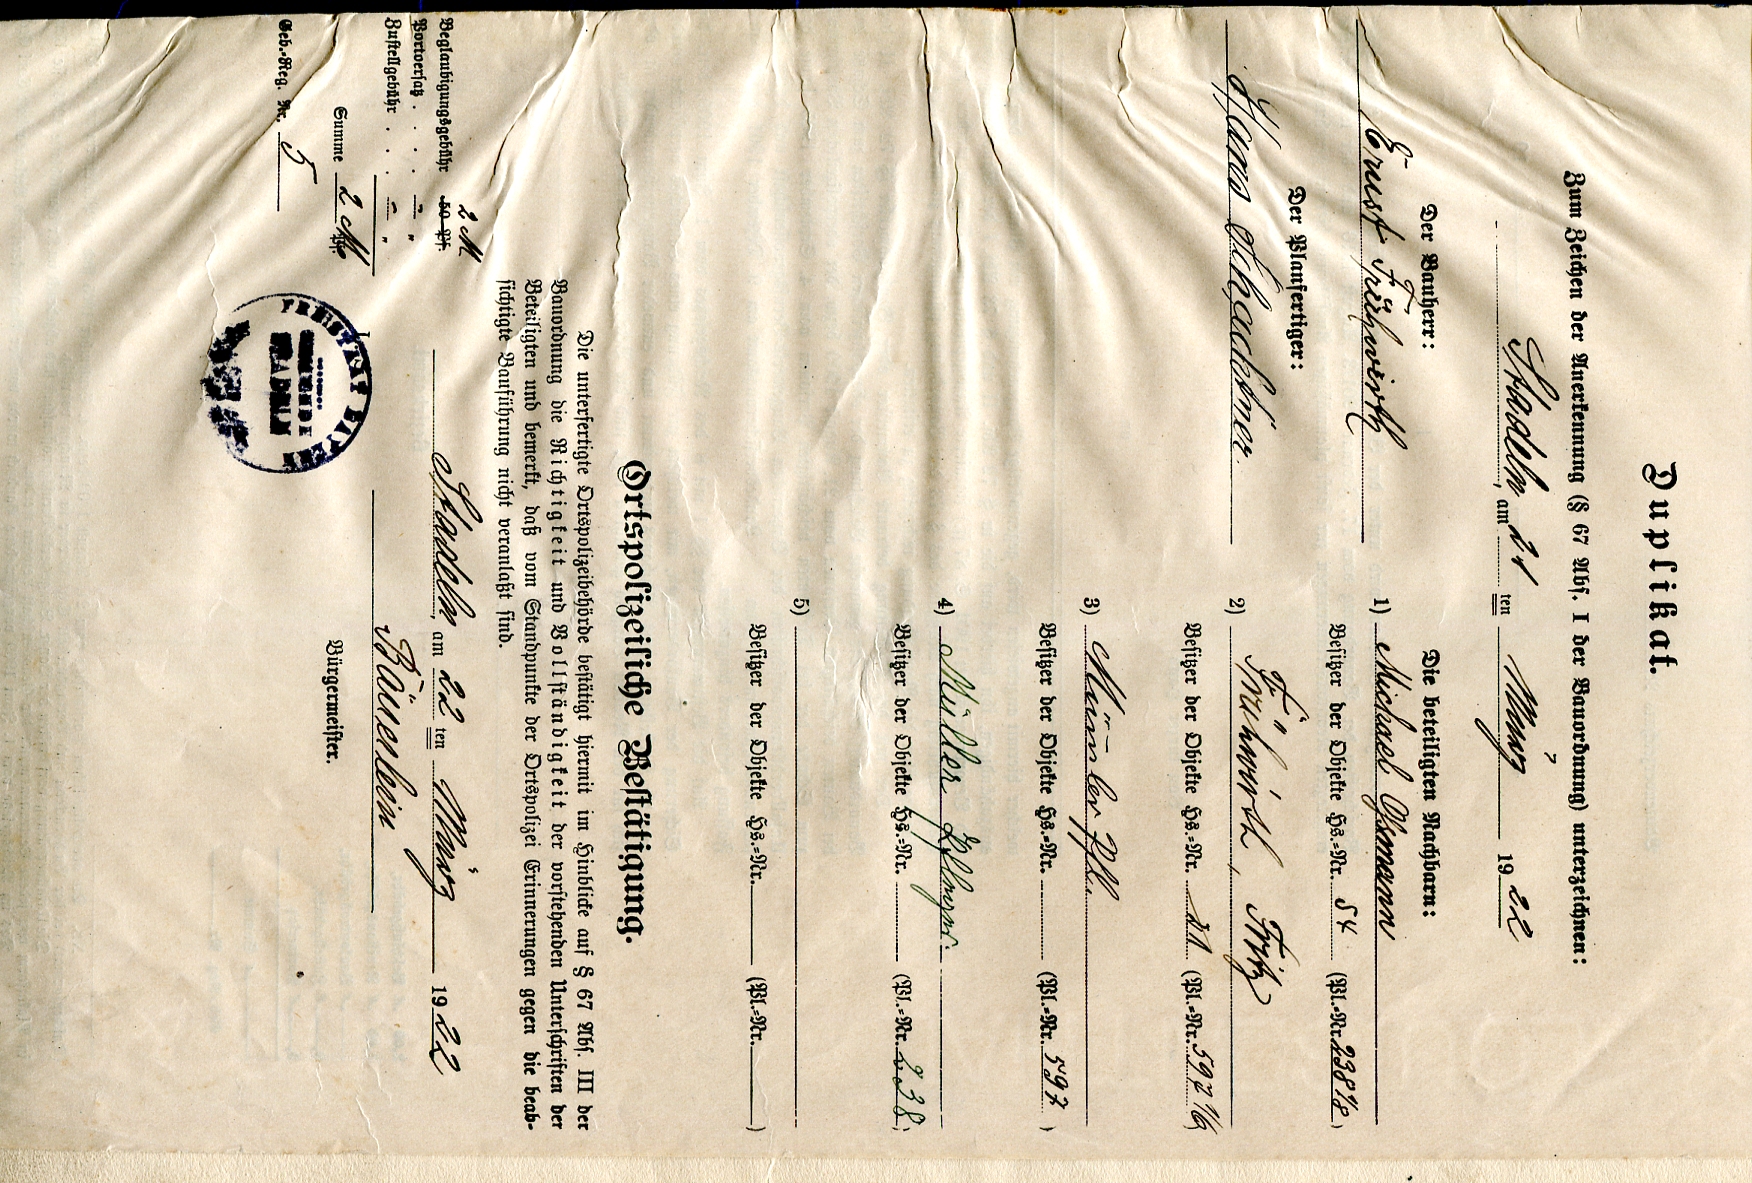 Duplikat.
Zum Zeichen der Anerkennung (§ 67 Abs. I der Bauordnung) unterzeichnen:
Stadeln, am 21 ten März 1922
Der Bauherr:
Ernst Frühwirth
Der Planfertiger:
Hans Schachtner
Die beteiligten Nachbarn:
1) Michael Gsmann
Besitzer der Objekte Hs.=Nr. 54 (Pl.=Nr. 238 1/2)
2) Frühwirth, Fritz
Besitzer der Objekte Hs.=Nr. 21 (Pl.=Nr. 597 1/6)
3)
Besitzer der Objekte Hs.=Nr. (Pl.=Nr. 597)
4) Müller
Besitzer der Objekte Hs.=Nr. (Pl.=Nr. 238)
5)
Besitzer der Objekte Hs.=Nr. (Pl.=Nr. )
Ortspolizeiliche Bestätigung.
Die unterfertigte Ortspolizeibehörde bestätigt hiermit im Hinblicke auf § 67 Abs. III der
Bauordnung die Richtigkeit und Vollständigkeit der vorstehenden Unterschriften der
Beteiligten und bemerkt, daß vom Standpunkte der Ortspolizei Erinnerungen gegen die beab-
sichtigte Bauführung nicht veranlaßt sind.
Stadeln, am 22 ten März 1922
Bäuerlein
Bürgermeister.
2 M
Beglaubigungsgebühr 50 Pf.
Portoersatz . . . — "
Zustellgebühr . . . — "
Summe 2 M
Geb.=Reg. Nr. 5
FREISTAAT BAYERN
GEMEINDE
STADELN